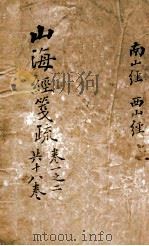 南山經 西山經
山海經箋疏 卷一之二
共十八卷